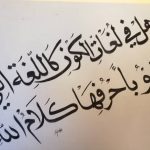 هل في لغات الكون كاللغة التي
بأحرفها كلام الله